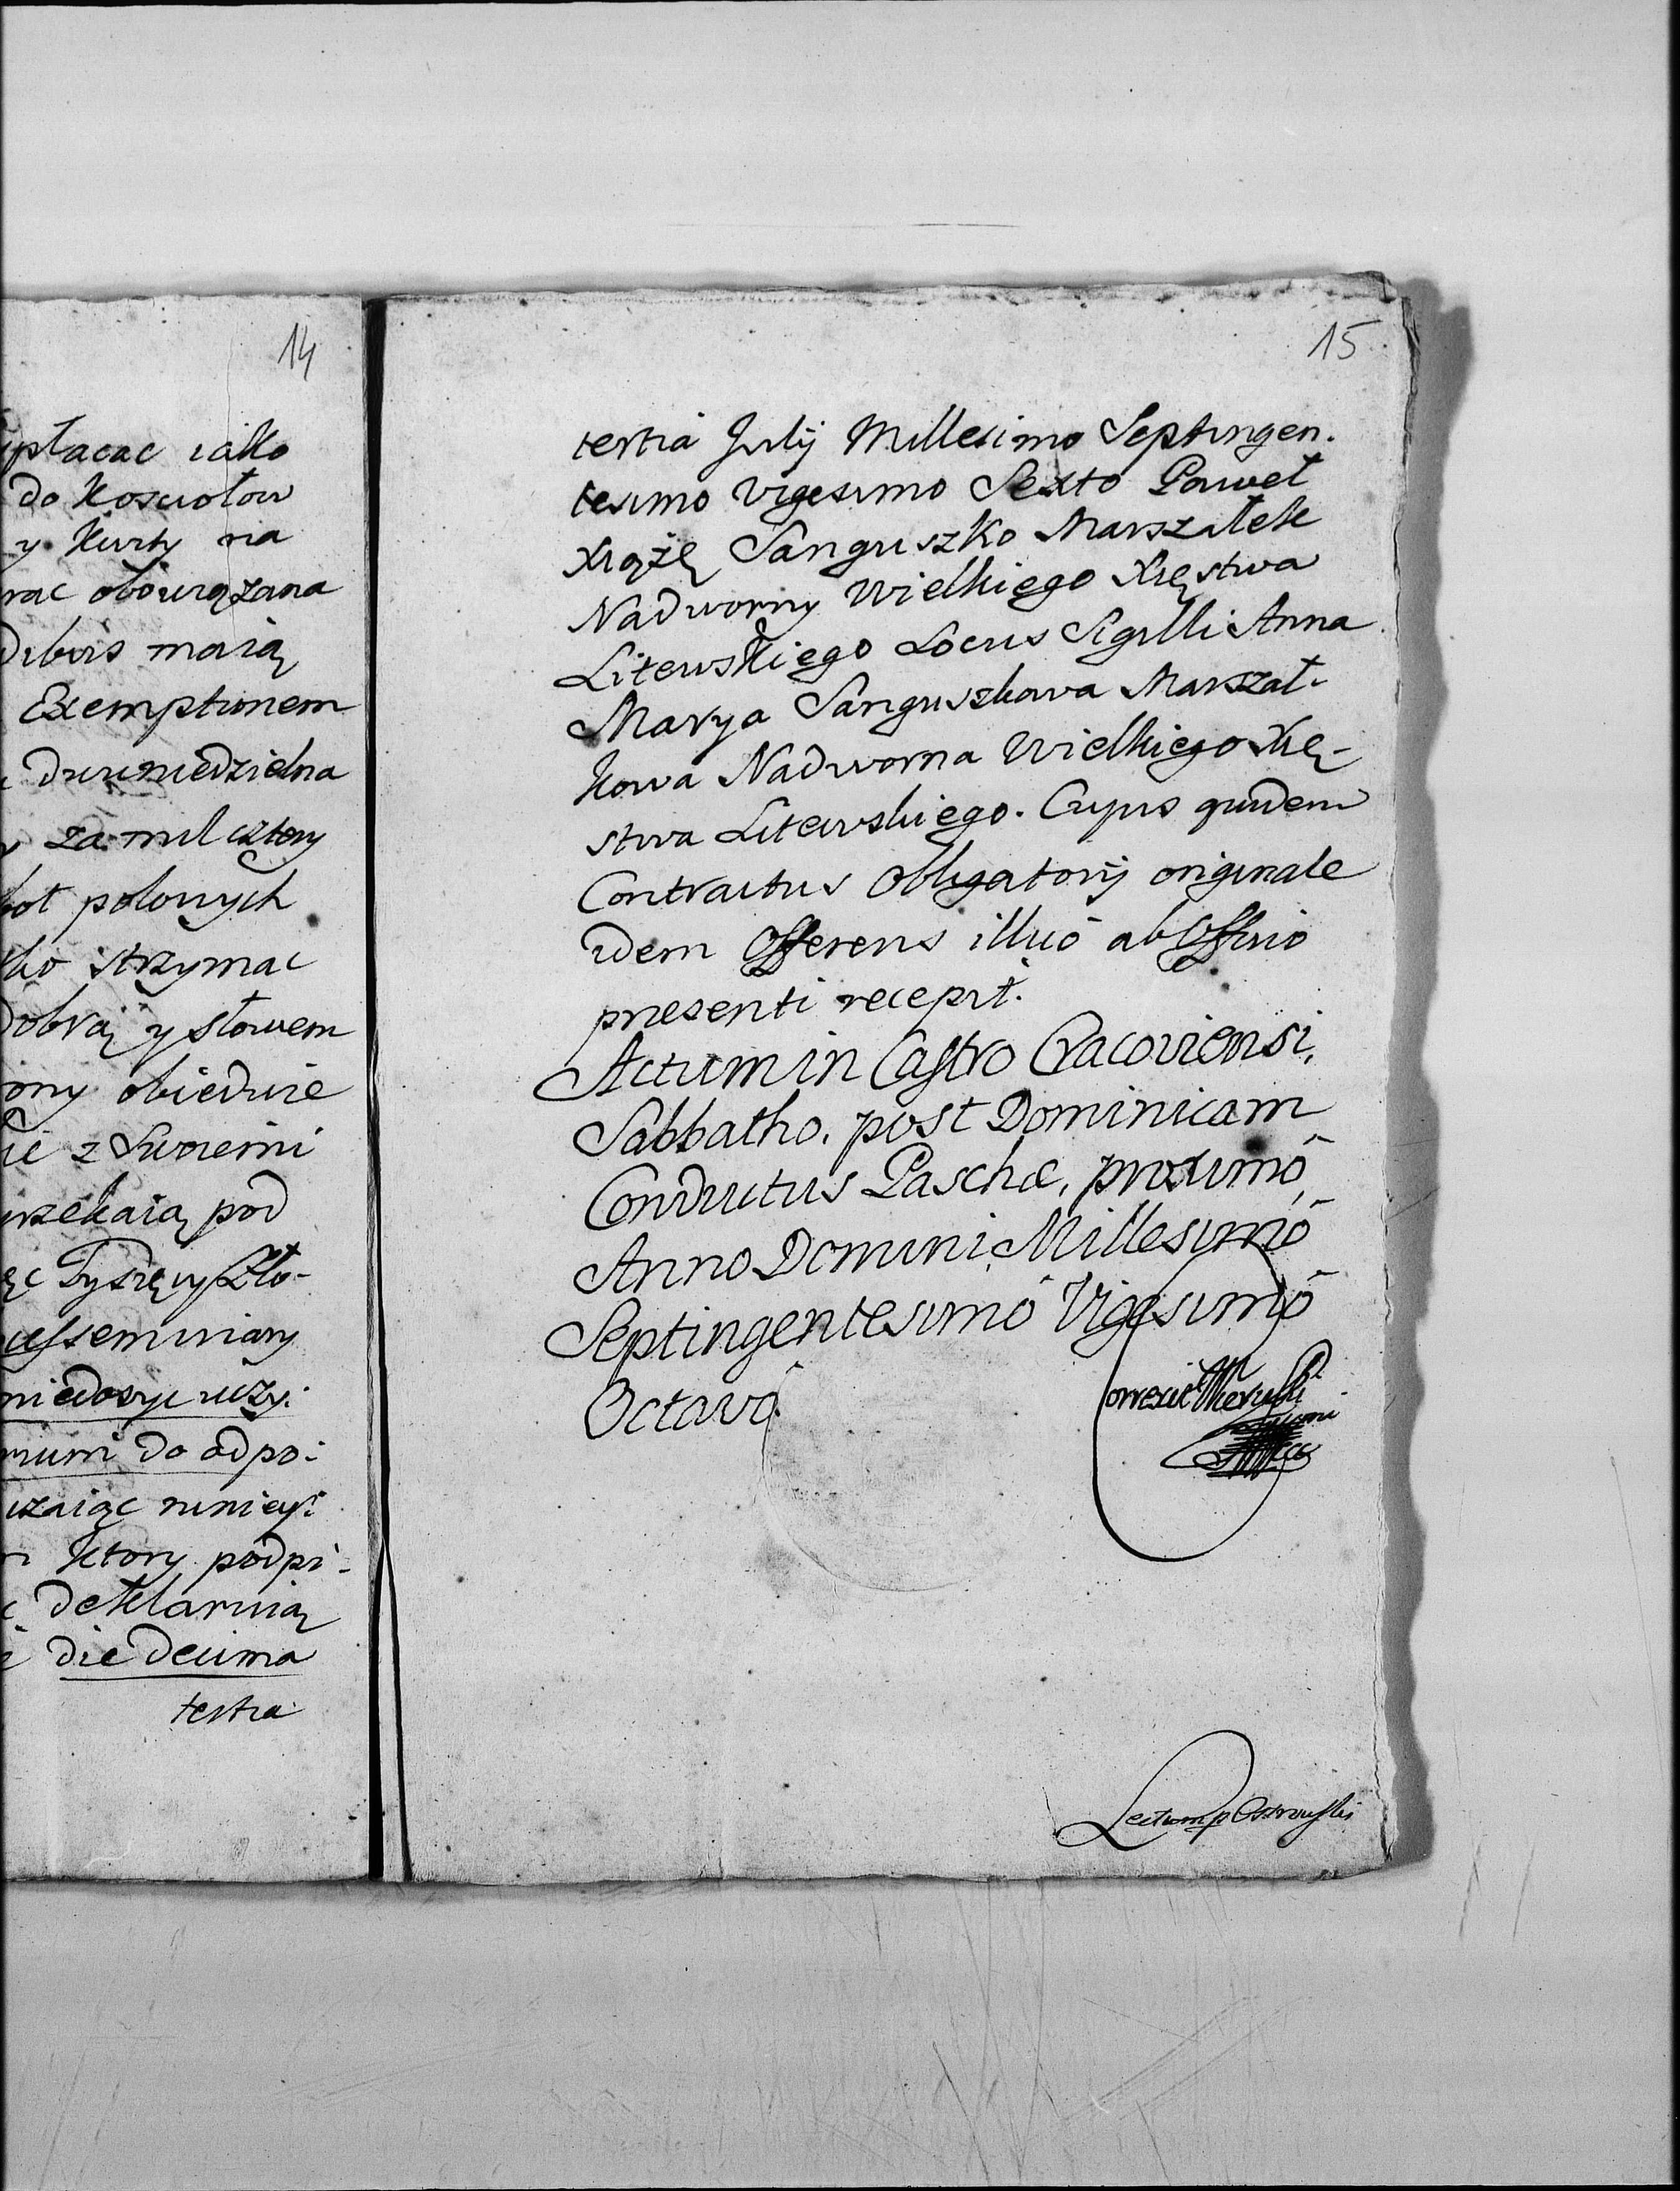 14
płacac iako
do Kosciołow
y Kurty na
rac obowiązana
maią
Exemptionem
dwuniedzielna
za mil cztery
bot polowych
strzymac
Dobrą y słowem
ony obiedwie
ie z Swoiemi
rzekaią pod
ęc Tysięcy Zło-
niedosyc uczy:
do odpo:
Ktory podpi-
deklaruią
die decima
tertia
15
tertia Julij Millesimo Septingen.
tesimo Vigesimo Sexto Paweł
Xiąże Sanguszko Marszałek
Nadworny Wielkiego Xięstwa
Litewskiego Locus Sigilli Anna
Marya Sanguszkowa Marszał-
kowa Nadworna Wielkiego Xię-
stwa Litewskiego. Cujus quidem
Contractus Obligatorij originale
idem Offerens illud ab Officio
presenti recepit.
Actum in Castro Cracoviensi,
Sabbatho, post Dominicam
Conductus Paschæ, proximo,
Anno Domini Millesimo
Septingentesimo Vigesimo
Octavo.
Correxit
Lectum p Ostrowski